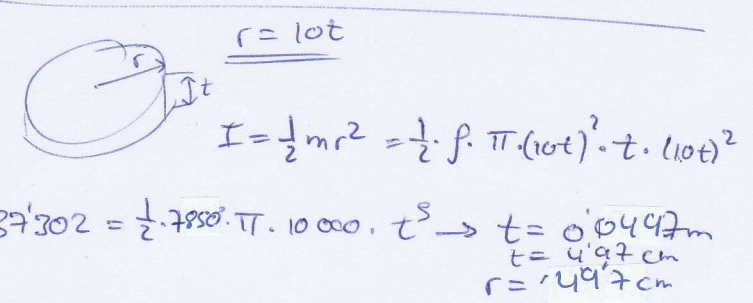 r = 10t
r
t
I = 1/2 mr² = 1/2 · ρ · π · (10t)² · t · (10t)²
37'302 = 1/2 · 7850 · π · 10 000 · t⁵ → t = 0'0497m
t = 4'97 cm
r = 49'7 cm